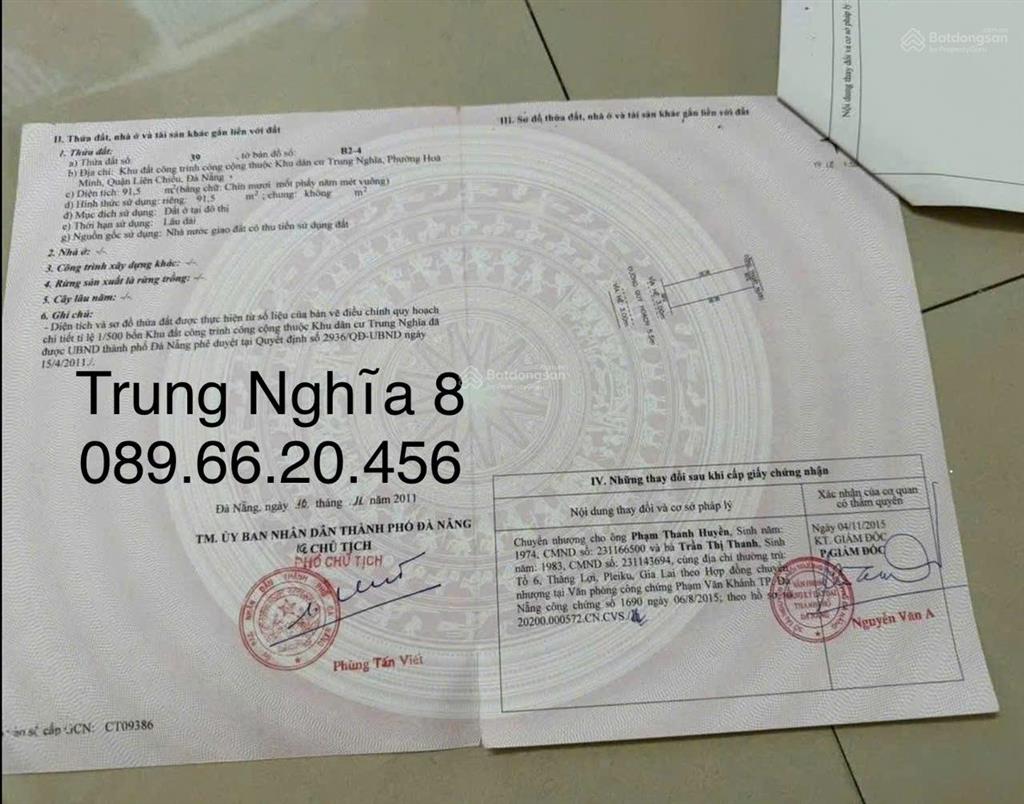 II. Thửa đất, nhà ở và tài sản khác gắn liền với đất
1. Thửa đất:
a) Thửa đất số: 39 , tờ bản đồ số: B2-4
b) Địa chỉ: Khu đất công trình công cộng thuộc Khu dân cư Trung Nghĩa, Phường Hoà
Minh, Quận Liên Chiểu, Đà Nẵng
c) Diện tích: 91,5 m² (bằng chữ: Chín mươi mốt phẩy năm mét vuông)
d) Hình thức sử dụng: riêng: 91,5 m² ; chung: không m²
đ) Mục đích sử dụng: Đất ở tại đô thị
e) Thời hạn sử dụng: Lâu dài
g) Nguồn gốc sử dụng: Nhà nước giao đất có thu tiền sử dụng đất
2. Nhà ở: -/-
3. Công trình xây dựng khác: -/-
4. Rừng sản xuất là rừng trồng: -/-
5. Cây lâu năm: -/-
6. Ghi chú:
- Diện tích và sơ đồ thửa đất được thực hiện từ số liệu của bản vẽ điều chỉnh quy hoạch
chi tiết tỉ lệ 1/500 bốn Khu đất công trình công cộng thuộc Khu dân cư Trung Nghĩa đã
được UBND thành phố Đà Nẵng phê duyệt tại Quyết định số 2936/QĐ-UBND ngày
15/4/2011./.
Trung Nghĩa 8
089.66.20.456
Đà Nẵng, ngày 16 tháng 11 năm 2011
TM. ỦY BAN NHÂN DÂN THÀNH PHỐ ĐÀ NẴNG
CHỦ TỊCH
PHÓ CHỦ TỊCH
Phùng Tấn Viết
số cấp GCN: CT09386
III. Sơ đồ thửa đất, nhà ở và tài sản khác gắn liền với đất
ĐƯỜNG QUY HOẠCH 5.5m
VỈA HÈ 3.00m
IV. Những thay đổi sau khi cấp giấy chứng nhận
Nội dung thay đổi và cơ sở pháp lý
Xác nhận của cơ quan
có thẩm quyền
Chuyển nhượng cho ông Phạm Thanh Huyền, Sinh năm:
1974, CMND số: 231166500 và bà Trần Thị Thanh, Sinh
năm: 1983, CMND số: 231143694, cùng địa chỉ thường trú:
Tổ 6, Thắng Lợi, Pleiku, Gia Lai theo Hợp đồng chuyển
nhượng tại Văn phòng công chứng Phạm Văn Khánh TP. Đà
Nẵng công chứng số 1690 ngày 06/8/2015; theo hồ sơ
20200.000572.CN.CVS./.
Ngày 04/11/2015
KT. GIÁM ĐỐC
P.GIÁM ĐỐC
Nguyễn Văn A
Nội dung thay đổi và cơ sở pháp lý
Batdongsan
by PropertyGuru
Batdongsan